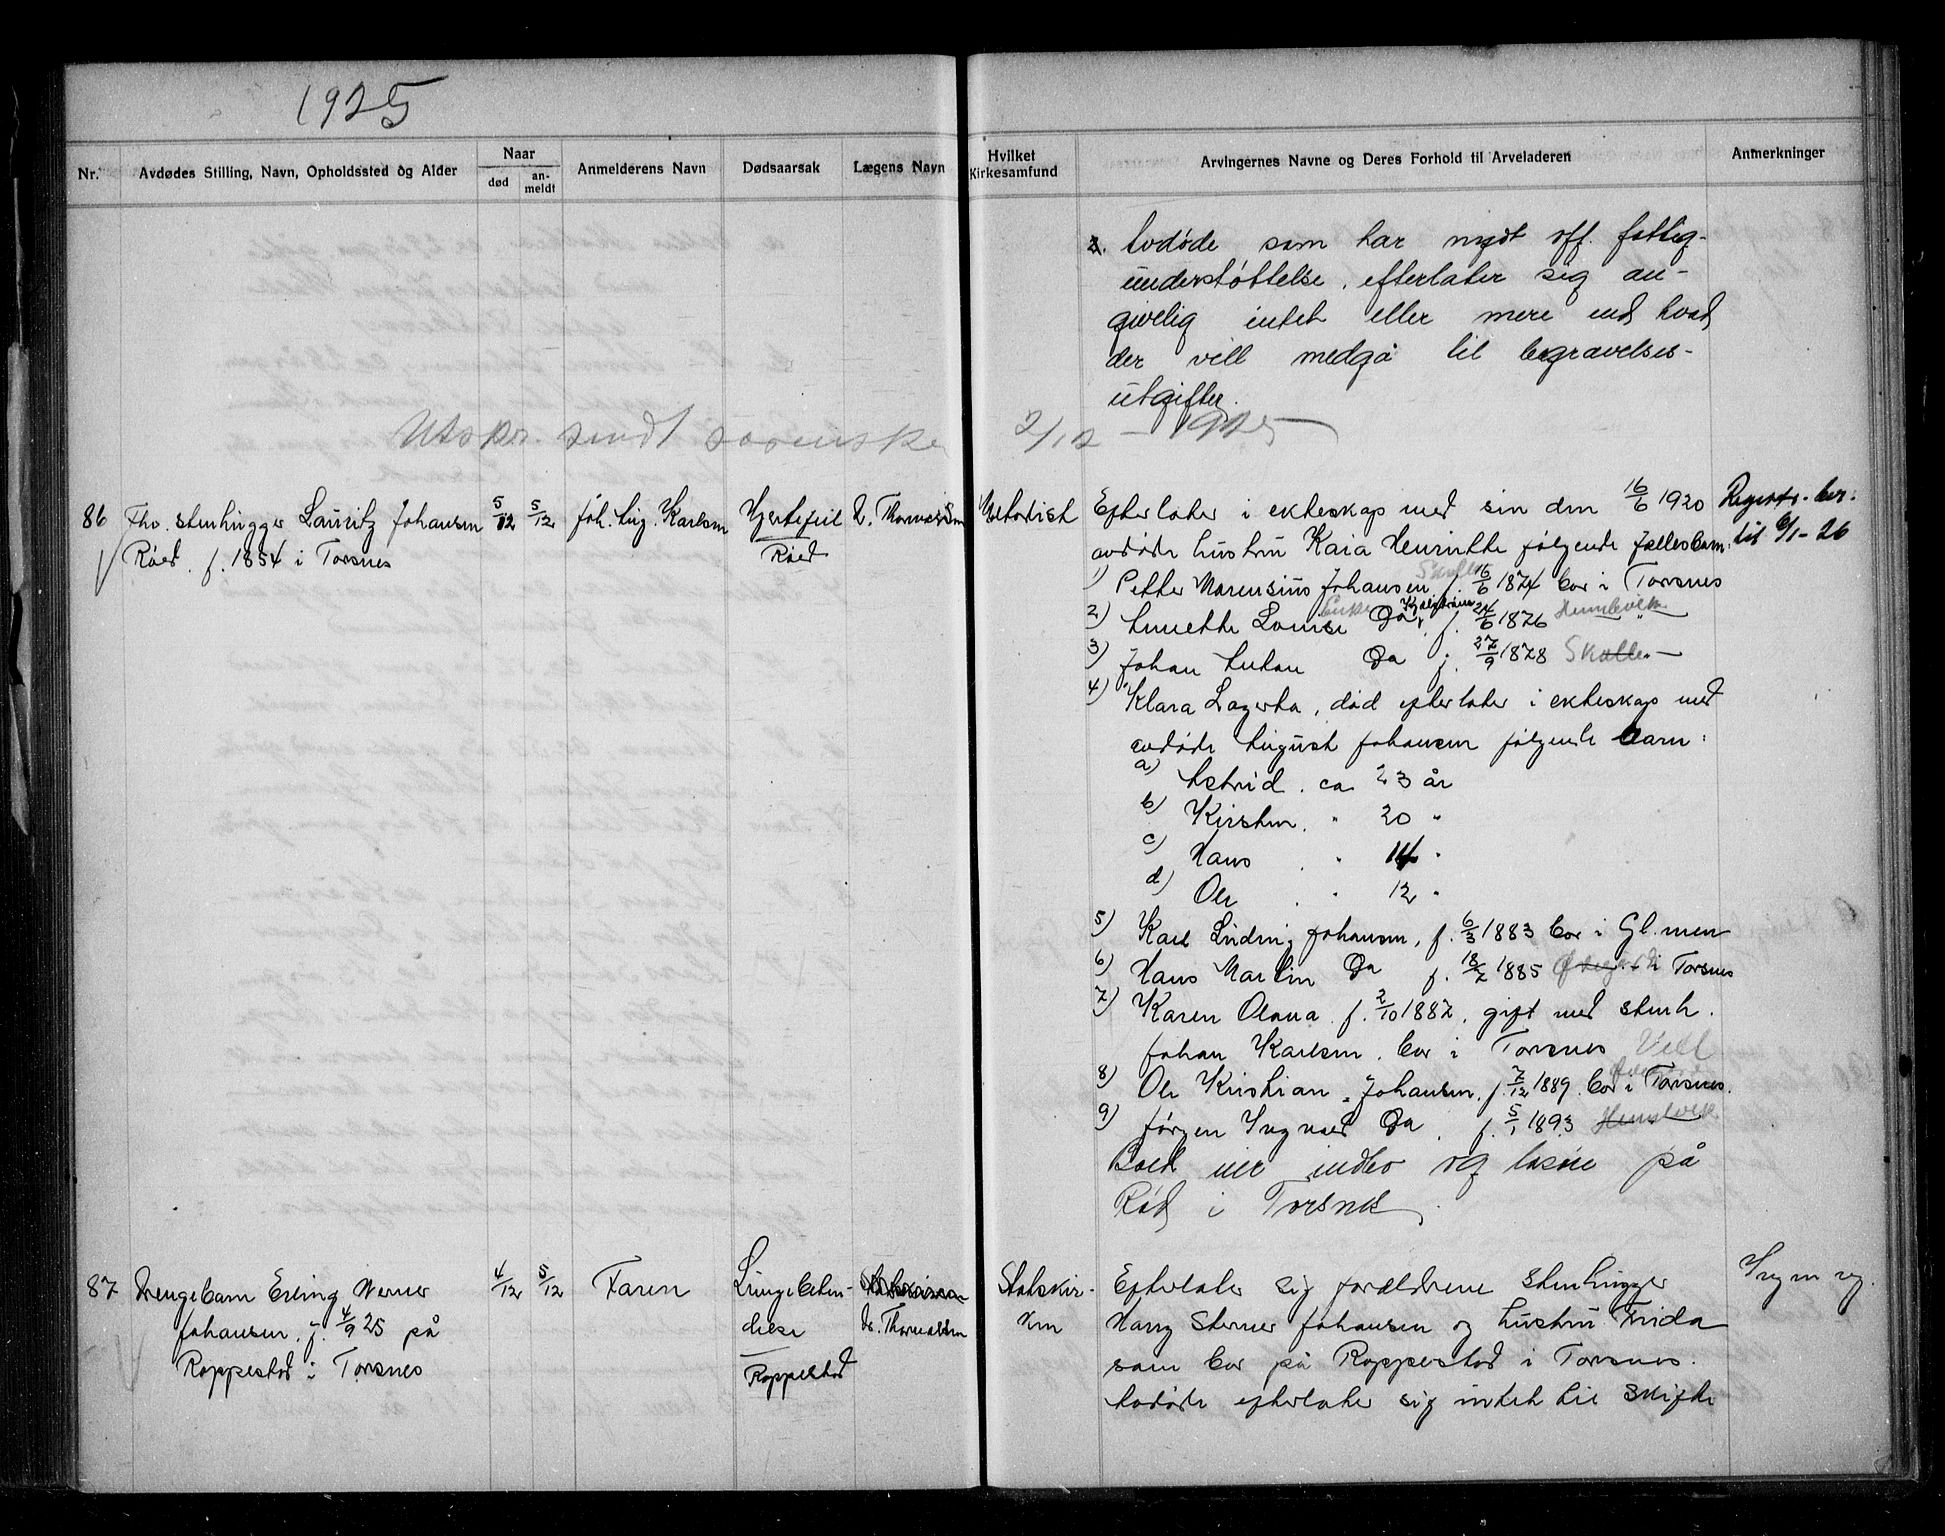 1925
Nr.
Avdødes Stilling, Navn, Opholdssted og Alder
Naar
død
an-
meldt
Anmelderens Navn
Dødsaarsak
Lægens Navn
Hvilket
Kirkesamfund
Arvingernes Navne og Deres Forhold til Arveladeren
Anmerkninger
Avdøde som har nydt off. fattig-
understøttelse, efterlater sig an-
givelig intet eller mere end hvad
der vill medgå til begravelses-
utgifter.
Utskr. sendt 2/12 - 1925
86
Fhv. stenhugger Lauritz Johansen
Røed. f. 1854 i Torsnes
5/12
5/12
Joh. Aug. Karlsen
Hjertefeil
Røed
D. Thomassen
Metodist
Efterlater i ekteskap med sin den 16/6 1920
avdøde hustru Kaia Henriette følgende fællesbarn.
1) Petter Marensius Johansen f. 16/6 1874 bor i Torsnes
2) Anette Lovise Da f. 24/6 1876
3) Johan Anton Da f. 27/9 1878 Skalle
4) Klara Lagerta, død efterlater i ekteskap med
avdøde August Johansen følgende barn:
a) Astrid . ca 23 år
b) Kirsten . " 20 "
c) Hans . " 14 "
d) Ole . " 12 "
5) Karl Ludvig Johansen, f. 6/3 1883 bor i Gl.men
6) Hans Martin Da f. 18/7 1885 i Torsnes
7) Karen Olava f. 2/10 1887, gift med stenh.
Johan Karlsen. bor i Torsnes
8) Ole Kristian Johansen, f. 7/12 1889. bor i Torsnes.
9) Jørgen Ingvald Da . f. 5/1 1893
Boet eier indbo og løsøre på
Rød i Torsnes.
Registr. ber.
til 6/1-26
87
Drengebarn Erling Werner
Johansen, f. 4/9 25 på
Roppestad i Torsnes
4/12
5/12
Faren
Lungebeten-
delse
Roppestad
D. Thomassen
Statskir-
ken
Efterlater sig forældrene Stenhugger
Harry Sterner Johansen og hustru Frida
som bor på Roppestad i Torsnes.
Avdøde efterlater sig intet til skifte
Ingen reg.